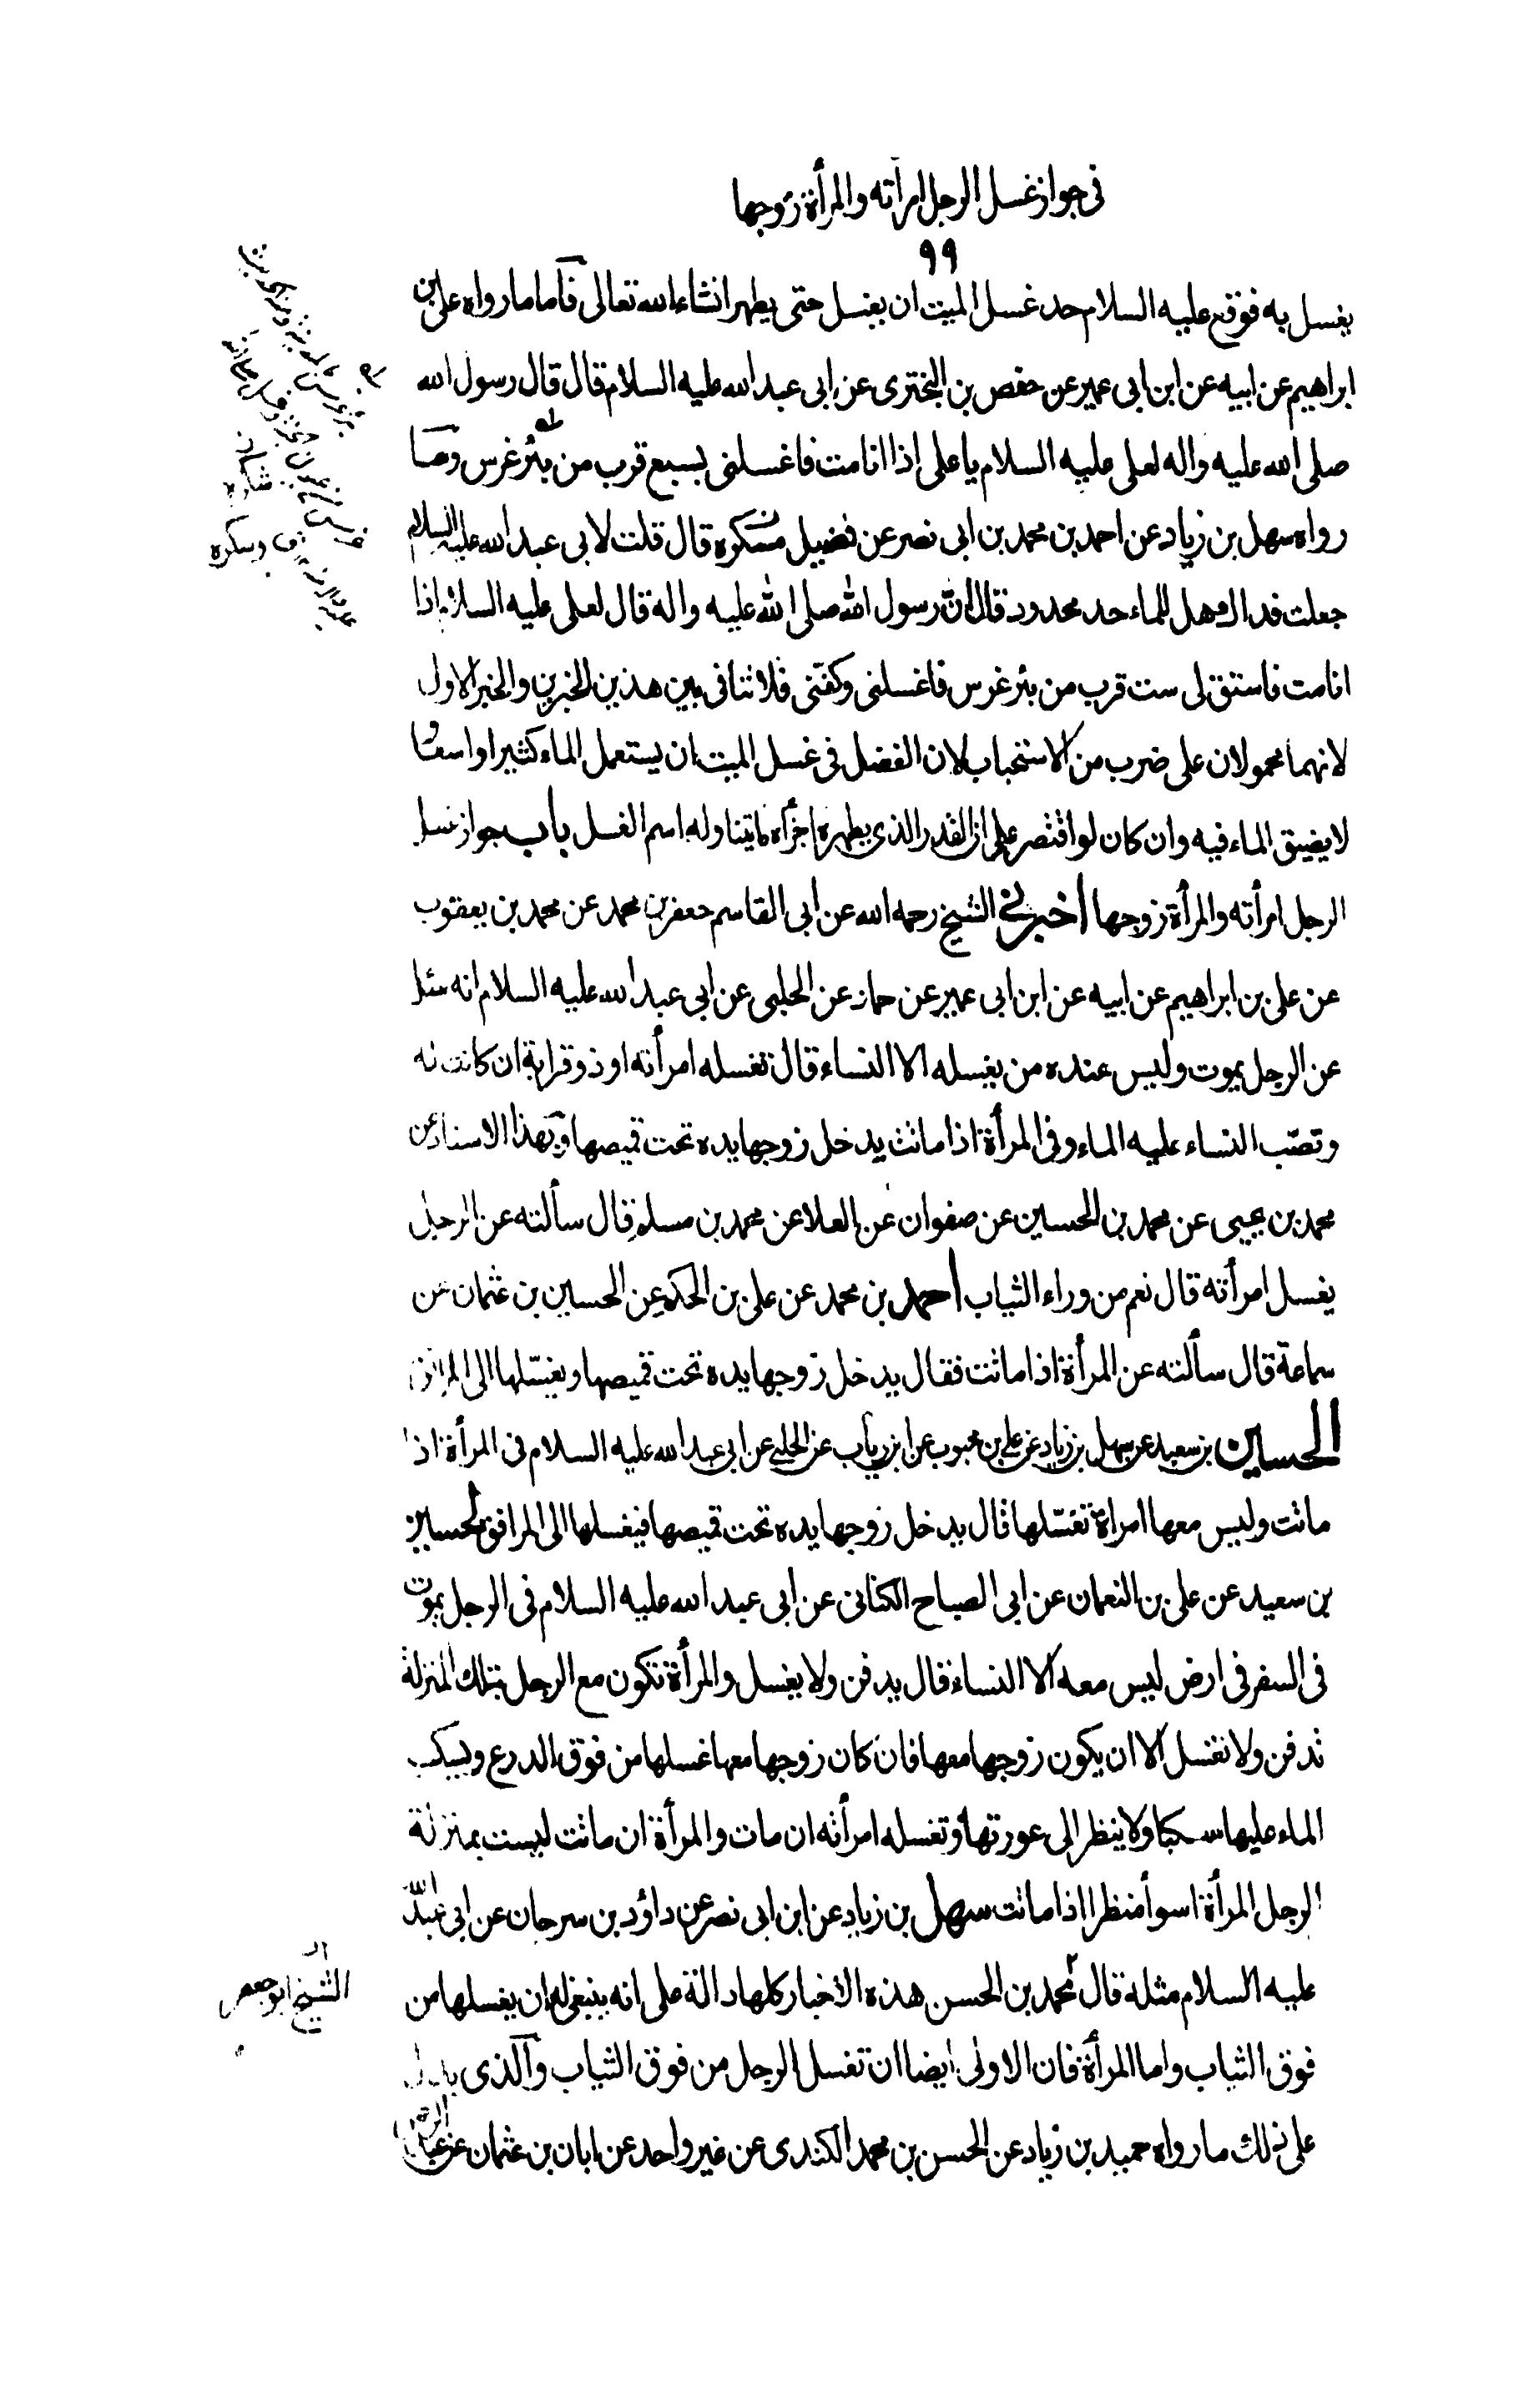 فی جواز غسل الرجل امرأته والمرأة زوجها
۹۹
یغسل به فوقع علیه السلام حد غسل المیت ان یغسل حتی یطهر انشاء الله تعالی فاما ما رواه علی بن
ابراهیم عن ابیه عن ابن ابی عمیر عن حفص بن البختری عن ابی عبد الله علیه السلام قال قال رسول الله
صلی الله علیه واله لعلی علیه السلام یا علی اذا انا مت فاغسلنی بسبع قرب من بئر غرس وما
رواه سهل بن زیاد عن احمد بن محمد بن ابی نصر عن فضیل سکره قال قلت لابی عبد الله علیه السلام
جعلت فداك هل للماء حد محدود قال ان رسول الله صلی الله علیه واله قال لعلی علیه السلام اذا
انا مت فاستق لی ست قرب من بئر غرس فاغسلنی وکفنی فلا تنافی بین هذین الخبرین والخبر الاول
لانهما محمولان علی ضرب من الاستحباب لان الفضل فی غسل المیت ان یستعمل الماء کثیرا واسعا و
لا یضیق الماء فیه وان کان لو اقتصر علی القدر الذی یطهره اجزأه ما یتناوله اسم الغسل باب جواز غسل
الرجل امرأته والمرأة زوجها اخبرنی الشیخ رحمه الله عن ابی القاسم جعفر بن محمد عن محمد بن یعقوب
عن علی بن ابراهیم عن ابیه عن ابن ابی عمیر عن حماد عن الحلبی عن ابی عبد الله علیه السلام انه سئل
عن الرجل یموت ولیس عنده من یغسله الا النساء قال تغسله امرأته او ذو قرابة ان کانت له
وتصّب النساء علیه الماء وفی المرأة اذا ماتت یدخل زوجها یده تحت قمیصها وبهذا الاسناد عن
محمد بن یحیی عن محمد بن الحسین عن صفوان عن العلا عن محمد بن مسلم قال سألته عن الرجل
یغسل امرأته قال نعم من وراء الثیاب احمد بن محمد عن علی بن الحکم عن الحسین بن عثمان عن
سماعة قال سألته عن المرأة اذا ماتت فقال یدخل زوجها یده تحت قمیصها ویغسّلها الی المرافق
الحسین بن سعید عن سهل بن زیاد عن علی بن محبوب عن ابن ریاب عن الحلبی عن ابی عبد الله علیه السلام فی المرأة اذا
ماتت ولیس معها امراة تغسّلها قال یدخل زوجها یده تحت قمیصها فیغسلها الی المرافق الحسین
بن سعید عن علی بن النعمان عن ابی الصباح الکنانی عن ابی عبد الله علیه السلام فی الرجل یموت
فی السفر فی ارض لیس معه الا النساء قال یدفن ولا یغسل والمرأة تکون مع الرجل بتلك المنزلة
تدفن ولا تغسل الا ان یکون زوجها معها فان کان زوجها معها غسلها من فوق الدرع ویسکب
الماء علیها سکبا ولا ینظر الی عورتها وتغسله امرأته ان مات والمرأة ان ماتت لیست بمنزلة
الرجل المرأة اسوأ منظرا اذا ماتت سهل بن زیاد عن ابن ابی نصر عن داؤد بن سرحان عن ابی عبد الله
علیه السلام مثله قال محمد بن الحسن هذه الاخبار کلها دالة علی انه ینبغی له ان یغسلها من
الشیخ ابو جعفر
فوق الثیاب واما المرأة فان الاولی ایضا ان تغسل الرجل من فوق الثیاب والذی یدل
علی ذلك ما رواه حمید بن زیاد عن الحسن بن محمد الکندی عن غیر واحد عن ابان بن عثمان عن عبد الرحمن